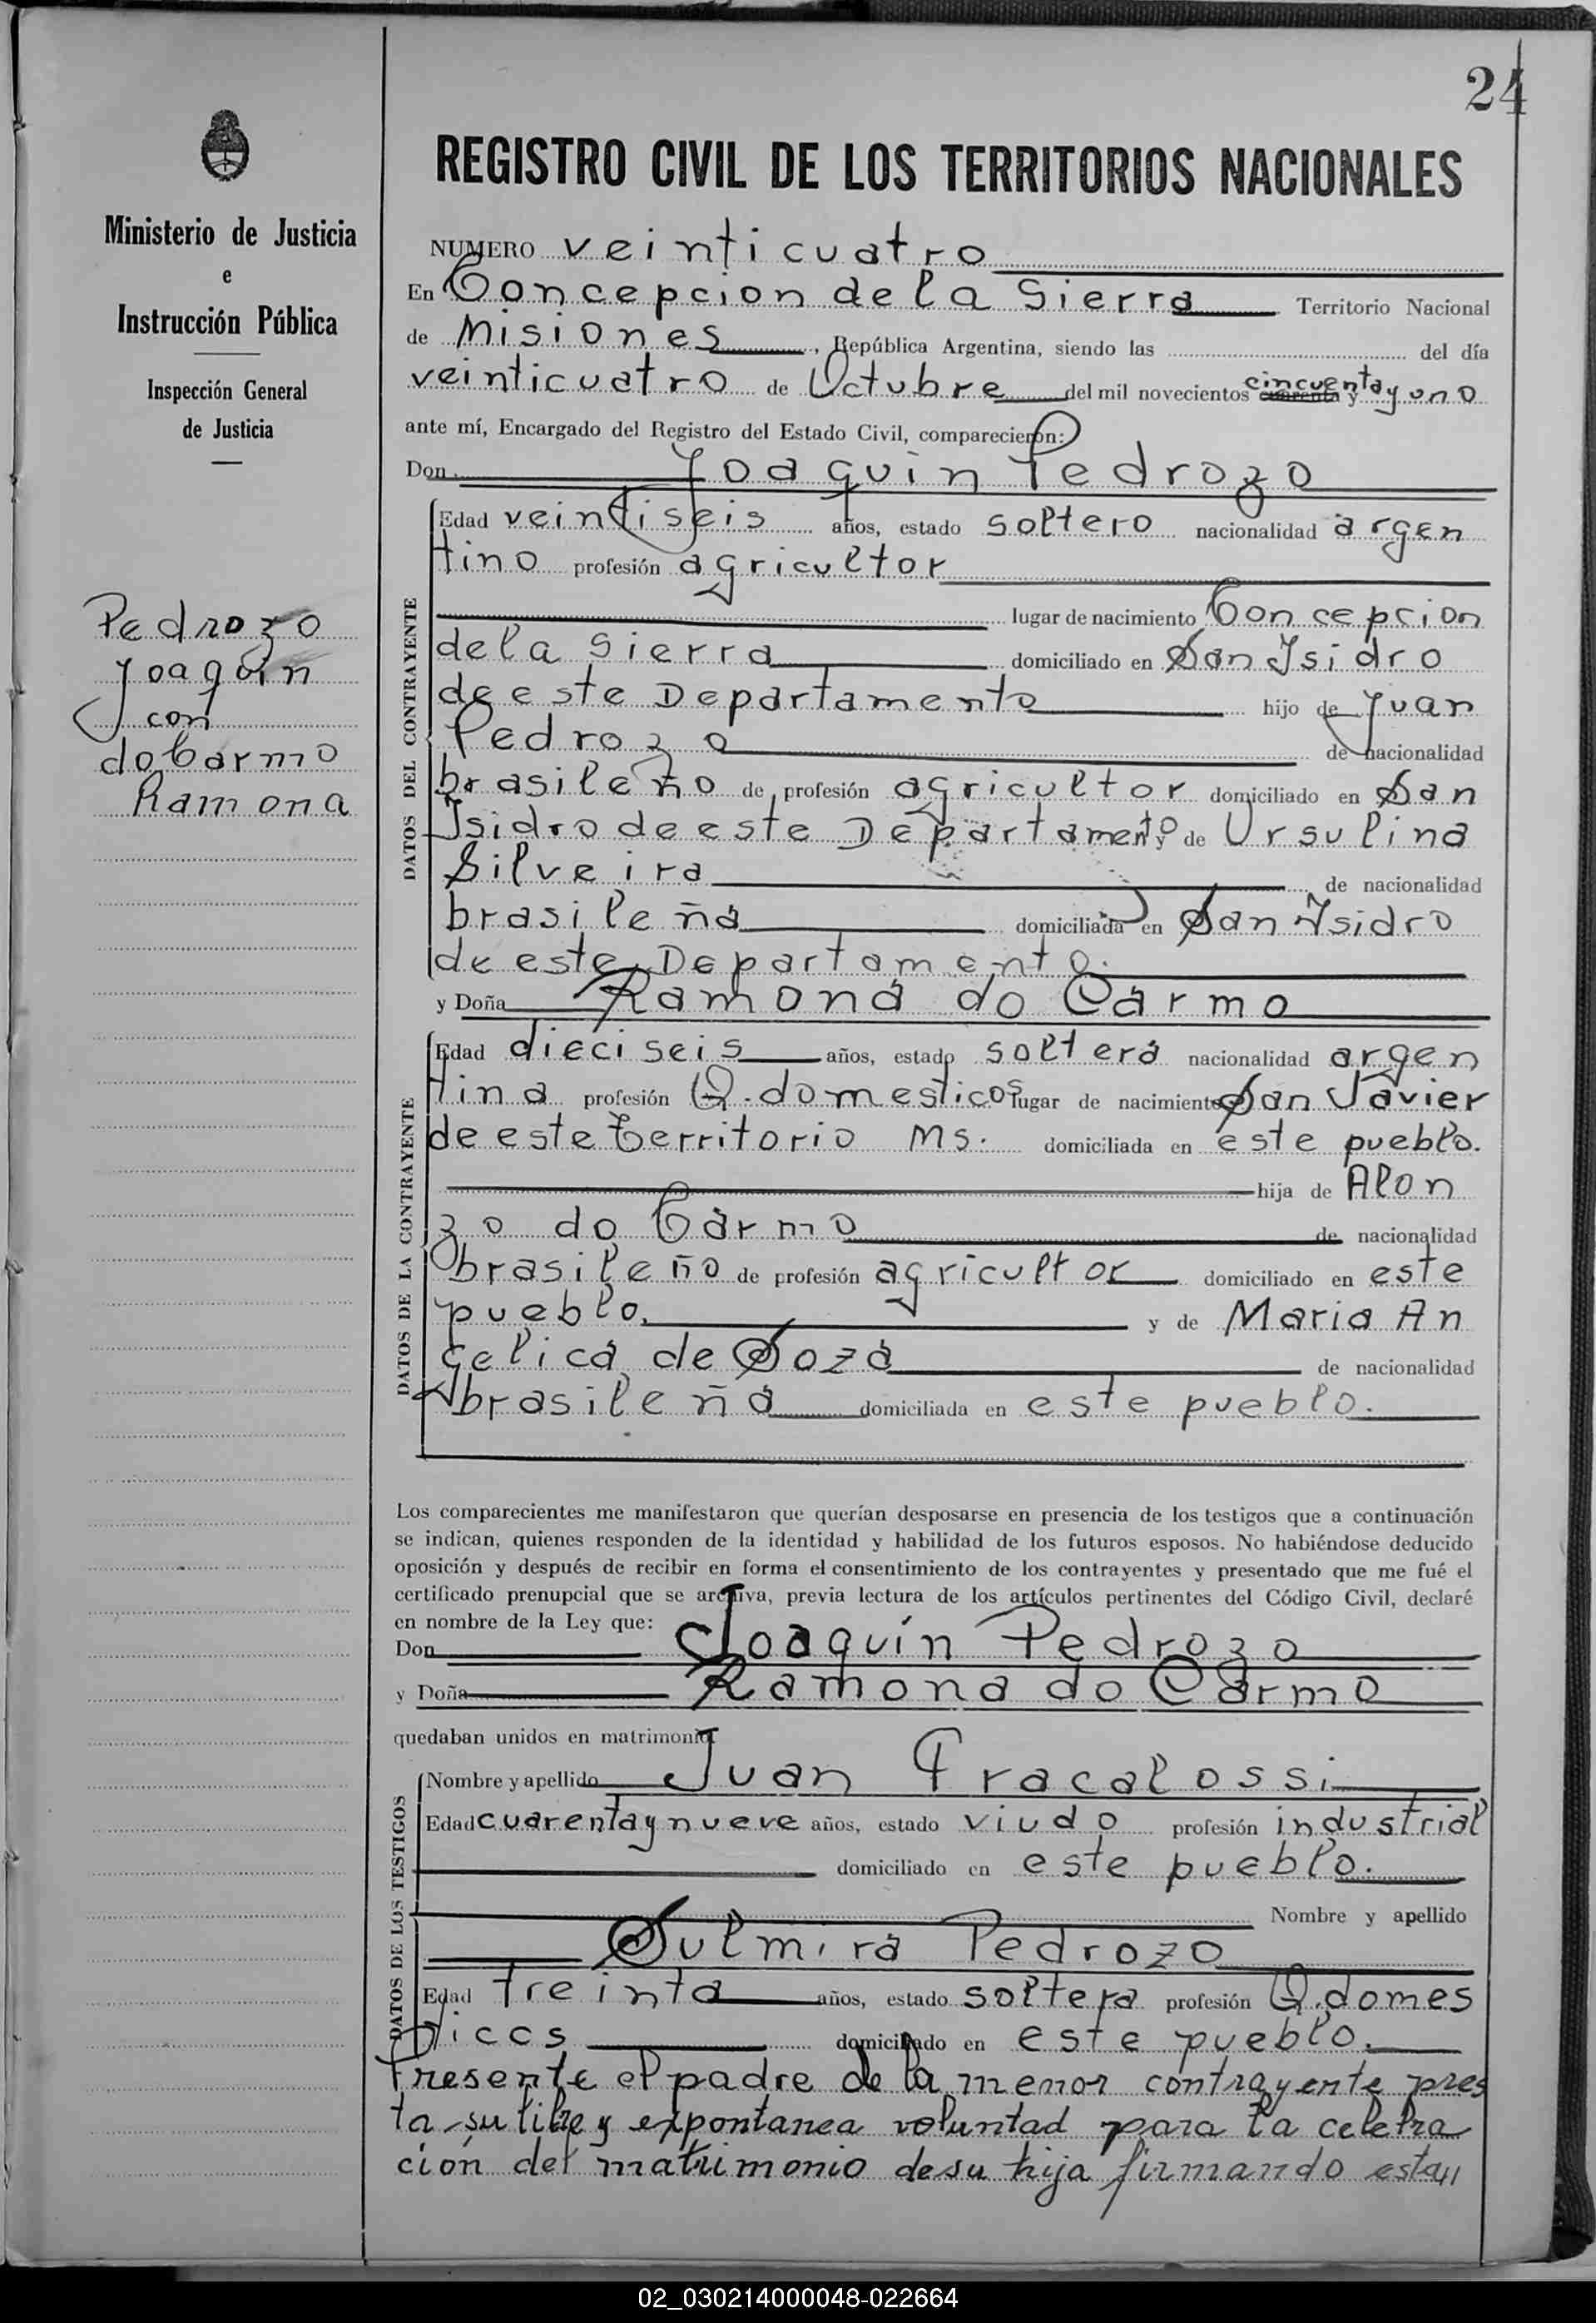 24
Ministerio de Justicia
e
Instrucción Pública
Inspección General
de Justicia
Pedrozo
Joaquin
con
do Carmo
Ramona
REGISTRO CIVIL DE LOS TERRITORIOS NACIONALES
NUMERO veinticuatro
En Concepcion de la Sierra Territorio Nacional
de Misiones, República Argentina, siendo las del día
veinticuatro de Octubre del mil novecientos cuarenta y cincuenta y uno
ante mí, Encargado del Registro del Estado Civil, comparecieron:
Don Joaquin Pedrozo
DATOS DEL CONTRAYENTE
Edad veintiseis años, estado soltero nacionalidad argen
tino profesión agricultor
lugar de nacimiento Concepcion
de la Sierra domiciliado en San Isidro
de este Departamento hijo de Juan
Pedrozo de nacionalidad
brasileño de profesión agricultor domiciliado en San
Isidro de este Departamento y de Ursulina
Silveira de nacionalidad
brasileña domiciliada en San Isidro
de este Departamento.
y Doña Ramona do Carmo
DATOS DE LA CONTRAYENTE
Edad dieciseis años, estado soltera nacionalidad argen
tina profesión Q. domesticos lugar de nacimiento San Javier
de este territorio Ms. domiciliada en este pueblo.
hija de Alon
zo do Carmo de nacionalidad
brasileño de profesión agricultor domiciliado en este
pueblo. y de Maria An
gelica de Soza de nacionalidad
brasileña domiciliada en este pueblo.
Los comparecientes me manifestaron que querían desposarse en presencia de los testigos que a continuación
se indican, quienes responden de la identidad y habilidad de los futuros esposos. No habiéndose deducido
oposición y después de recibir en forma el consentimiento de los contrayentes y presentado que me fué el
certificado prenupcial que se archiva, previa lectura de los artículos pertinentes del Código Civil, declaré
en nombre de la Ley que:
Don Joaquín Pedrozo
y Doña Ramona do Carmo
quedaban unidos en matrimonio.
DATOS DE LOS TESTIGOS
Nombre y apellido Juan Fracalossi
Edad cuarenta y nueve años, estado viudo profesión industrial
domiciliado en este pueblo.
Nombre y apellido
Sulmira Pedrozo
Edad treinta años, estado soltera profesión Q. domes
ticos domiciliado en este pueblo.
Presente el padre de la menor contrayente pres
ta su libre y expontanea voluntad para la celebra
ción del matrimonio de su hija firmando esta//
02_030214000048-022664